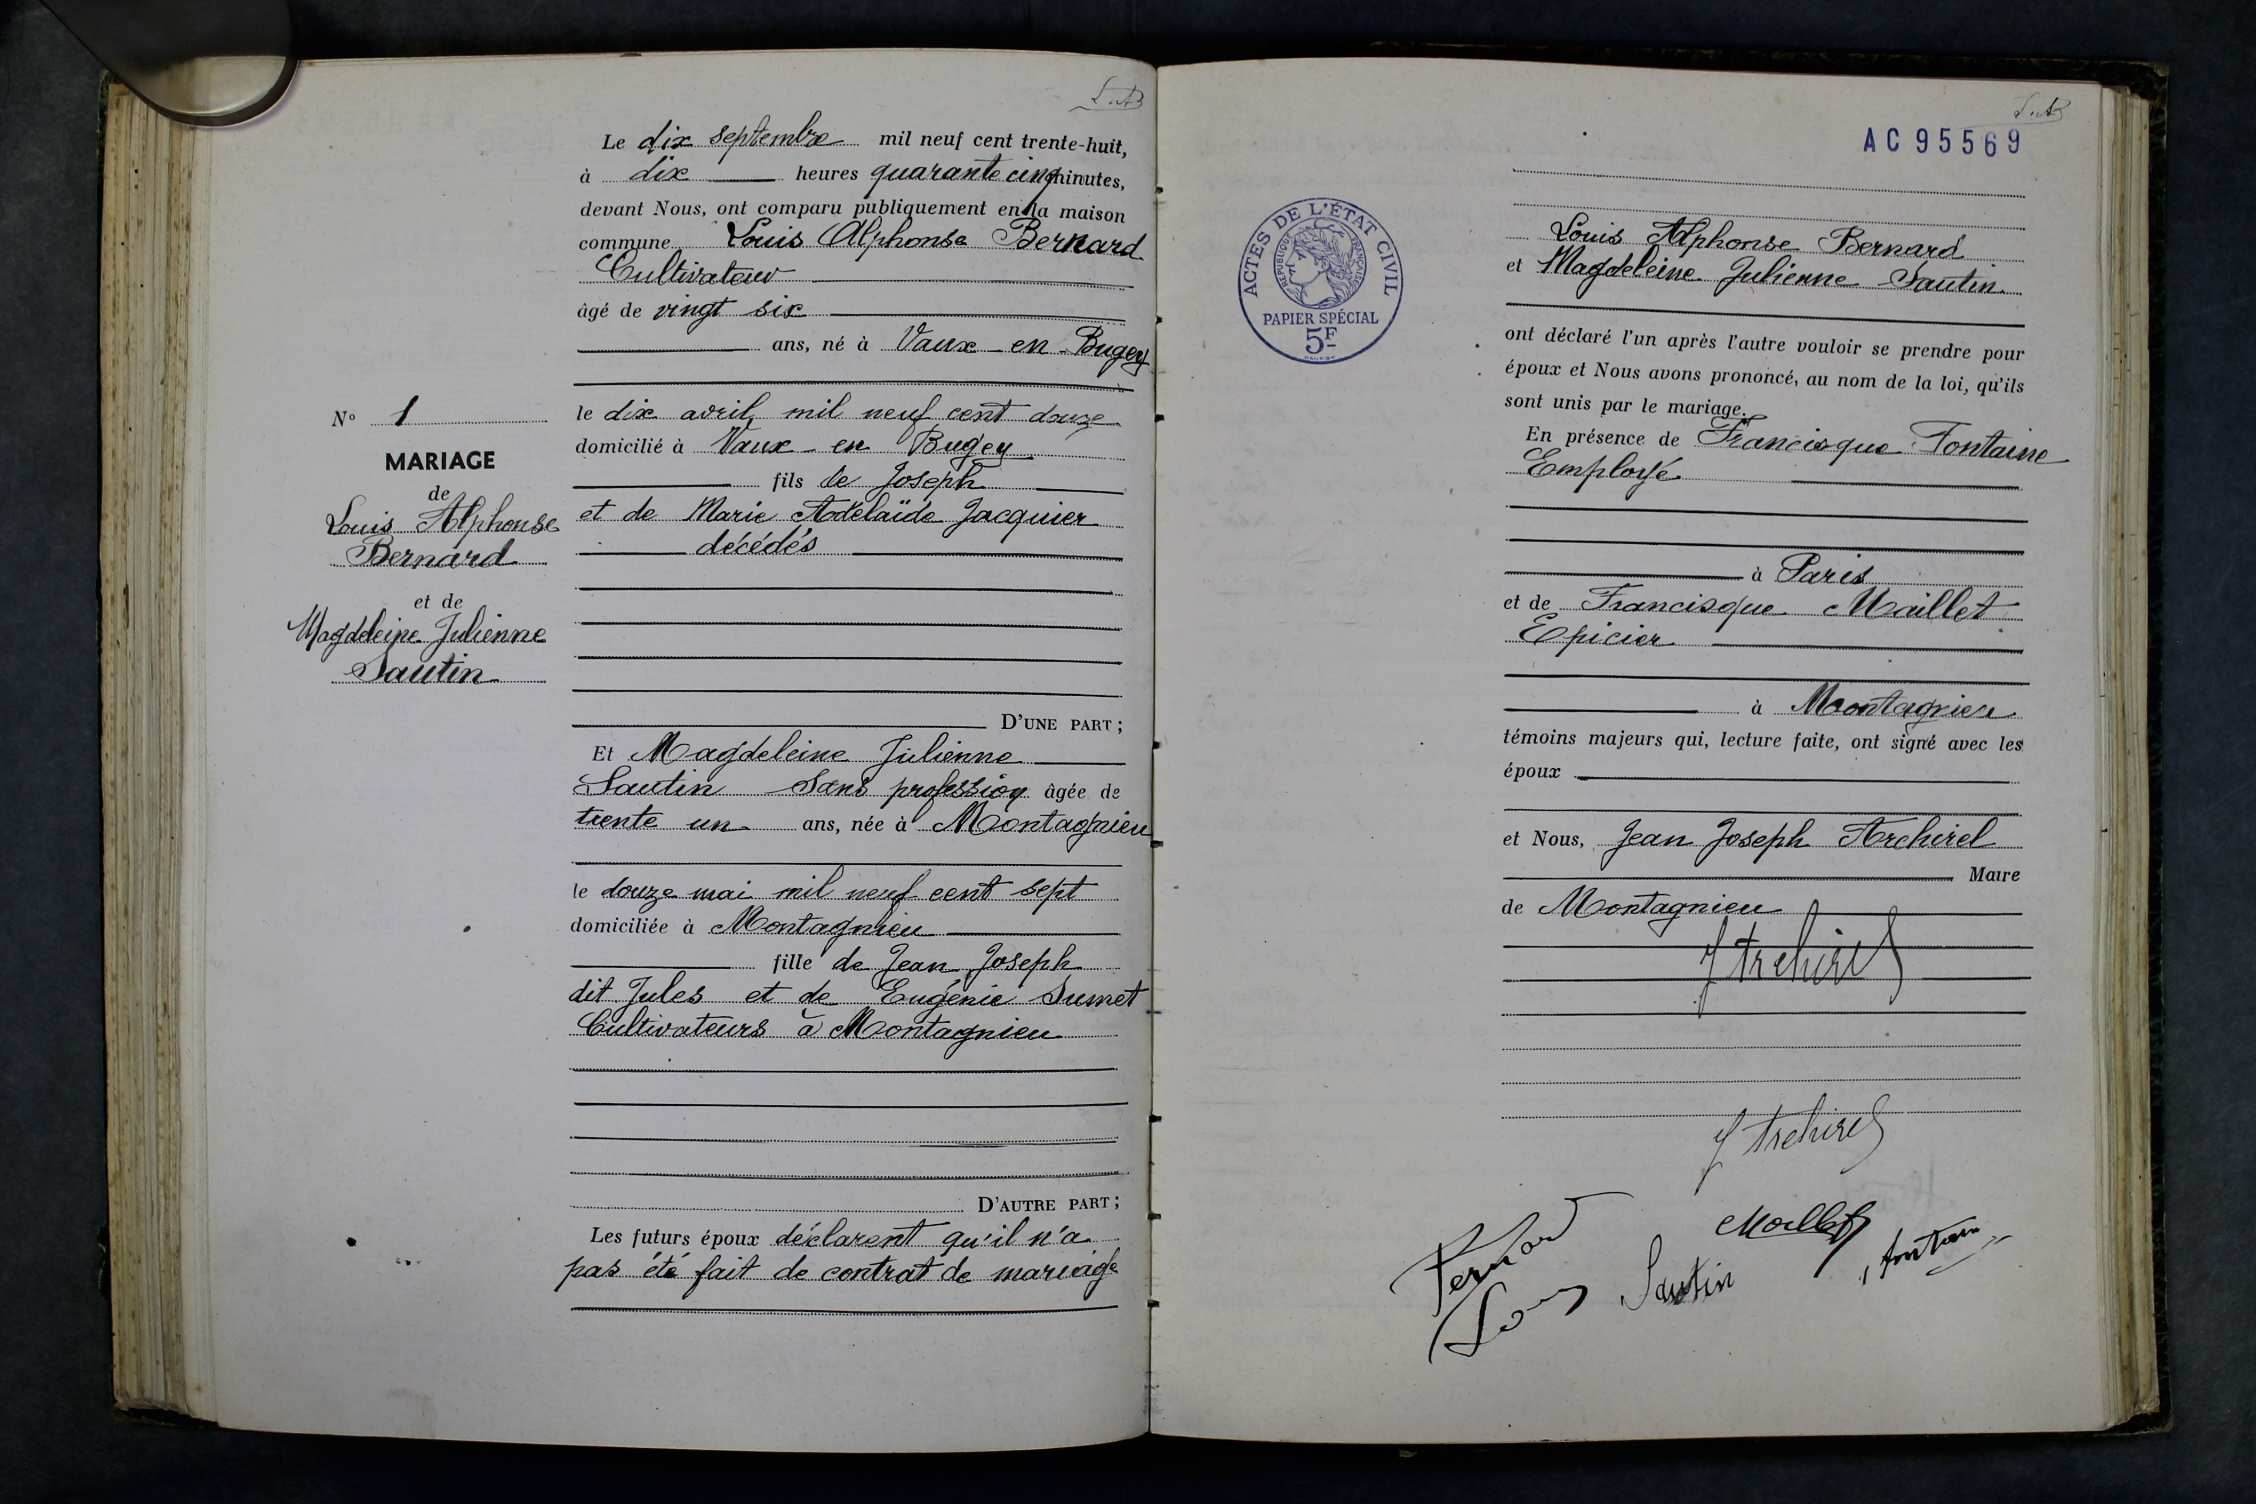 Le dix septembre mil neuf cent trente-huit,
à dix heures quarante cinq minutes,
devant Nous, ont comparu publiquement en la maison
commune Louis Alphonse Bernard
Cultivateur
âgé de vingt six
ans, né à Vaux en Bugey
le dix avril mil neuf cent douze
domicilié à Vaux en Bugey
fils de Joseph
et de Marie Adélaïde Jacquier
décédés
D'UNE PART ;
Et Magdeleine Julienne
Sautin Sans profession âgée de
trente un ans, née à Montagnieu
le douze mai mil neuf cent sept
domiciliée à Montagnieu
fille de Jean Joseph
dit Jules et de Eugénie Sumet
Cultivateurs à Montagnieu
D'AUTRE PART ;
Les futurs époux déclarent qu'il n'a
pas été fait de contrat de mariage
N° 1
MARIAGE
de
Louis Alphonse
Bernard
et de
Magdeleine Julienne
Sautin
AC 95569
ACTES DE L'ÉTAT CIVIL
RÉPUBLIQUE FRANÇAISE
PAPIER SPÉCIAL
5F
Louis Alphonse Bernard
et Magdeleine Julienne Sautin
ont déclaré l'un après l'autre vouloir se prendre pour
époux et Nous avons prononcé, au nom de la loi, qu'ils
sont unis par le mariage.
En présence de Francisque Fontaine
Employé
à Paris
et de Francisque Maillet
Epicier
à Montagnieu
témoins majeurs qui, lecture faite, ont signé avec les
époux
et Nous, Jean Joseph Archirel
Maire
de Montagnieu
J Archirel
J Archirel
Maillet
Bernard
Louis
Sautin
Fontaine